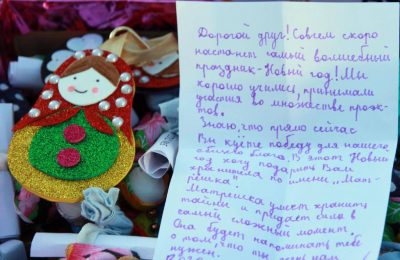 Дорогой друг! Совсем скоро
настанет самый волшебный
праздник - Новый год! Мы
хорошо учились, принимали
участия во множестве проек-
тов.
Знаю, что прямо сейчас
Вы куёте победу для нашего
общего блага. В этот Новый
год хочу подарить Вам
хранителя по имени „Мат-
рёшка".
Матрёшка умеет хранить
тайны и придаёт сил в
самый сложный момент.
Она будет напоминать тебе
о том, что ты
нужен.